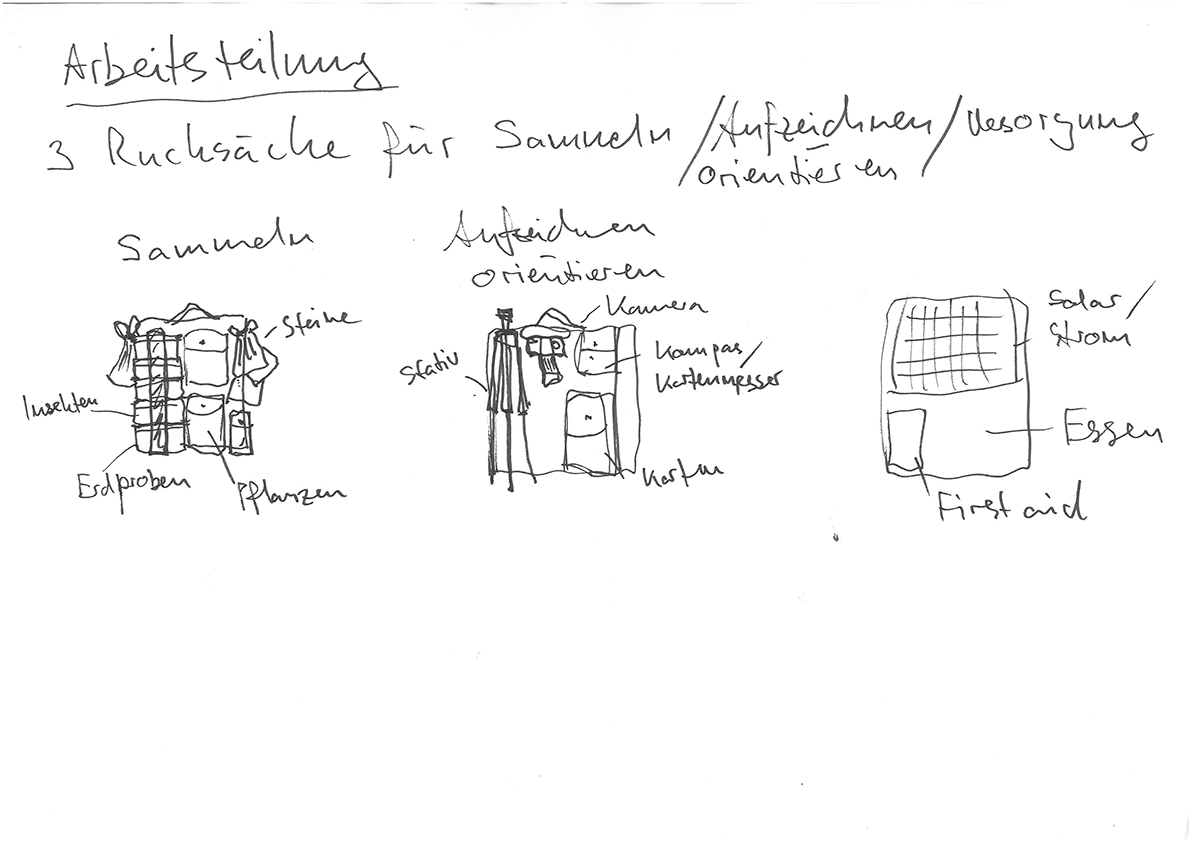 Arbeitsteilung
3 Rucksäcke für Sammeln / Aufzeichnen / Versorgung
orientieren
Sammeln
Aufzeichnen
orientieren
Steine
Insekten
Erdproben
Pflanzen
Kamera
Stativ
Kompas/
Kartenmesser
Karten
Solar/
Strom
Essen
First aid